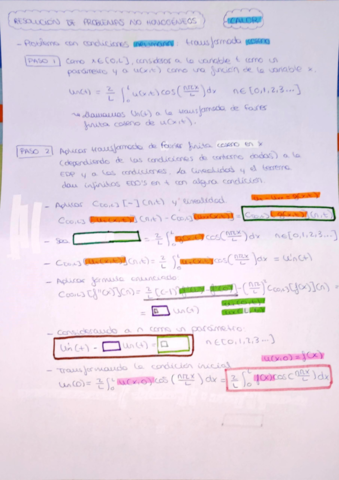 RESOLUCIÓN DE PROBLEMAS NO HOMOGÉNEOS CALOR
- Problema con condiciones transformada coseno
PASO 1 Como x∈[0,L], consideras a la variable t como un
parámetro y a u(x,t) como una función de la variable x.
Un(t) = 2/L ∫₀ᴸ u(x,t) cos(nπx/L) dx n∈[0,1,2,3...]
→ Llamamos Un(t) a la transformada de Fourier
finita coseno de u(x,t).
PASO 2 Aplicar transformada de Fourier finita coseno en x
(dependiendo de las condiciones de contorno dadas) a la
EDP y a las condiciones. La linealidad y el teorema
dan infinitas EDO's en t con alguna condición.
- Aplicar C[0,L] [-](n,t) y linealidad
C[0,L] (n,t) - C[0,L] = C[0,L] (n,t)
= 2/L ∫₀ᴸ cos(nπx/L) dx n∈[0,1,2,3...]
- C[0,L] (n,t) = 2/L ∫₀ᴸ cos(nπx/L) dx = U'n(t)
- Aplicar fórmula
C[0,L] [f''(x)](n) = 2/L [(-1)ⁿ - (nπ/L)² C[0,L] [f(x)](n) =
= □ Un(t)
- Considerando a n como un parámetro
U'n(t) - □ Un(t) = □ n∈[0,1,2,3...]
- Transformando la condición inicial u(x,0)=f(x)
Un(0) = 2/L ∫₀ᴸ u(x,0) cos(nπx/L) dx = 2/L ∫₀ᴸ f(x) cos(nπx/L) dx